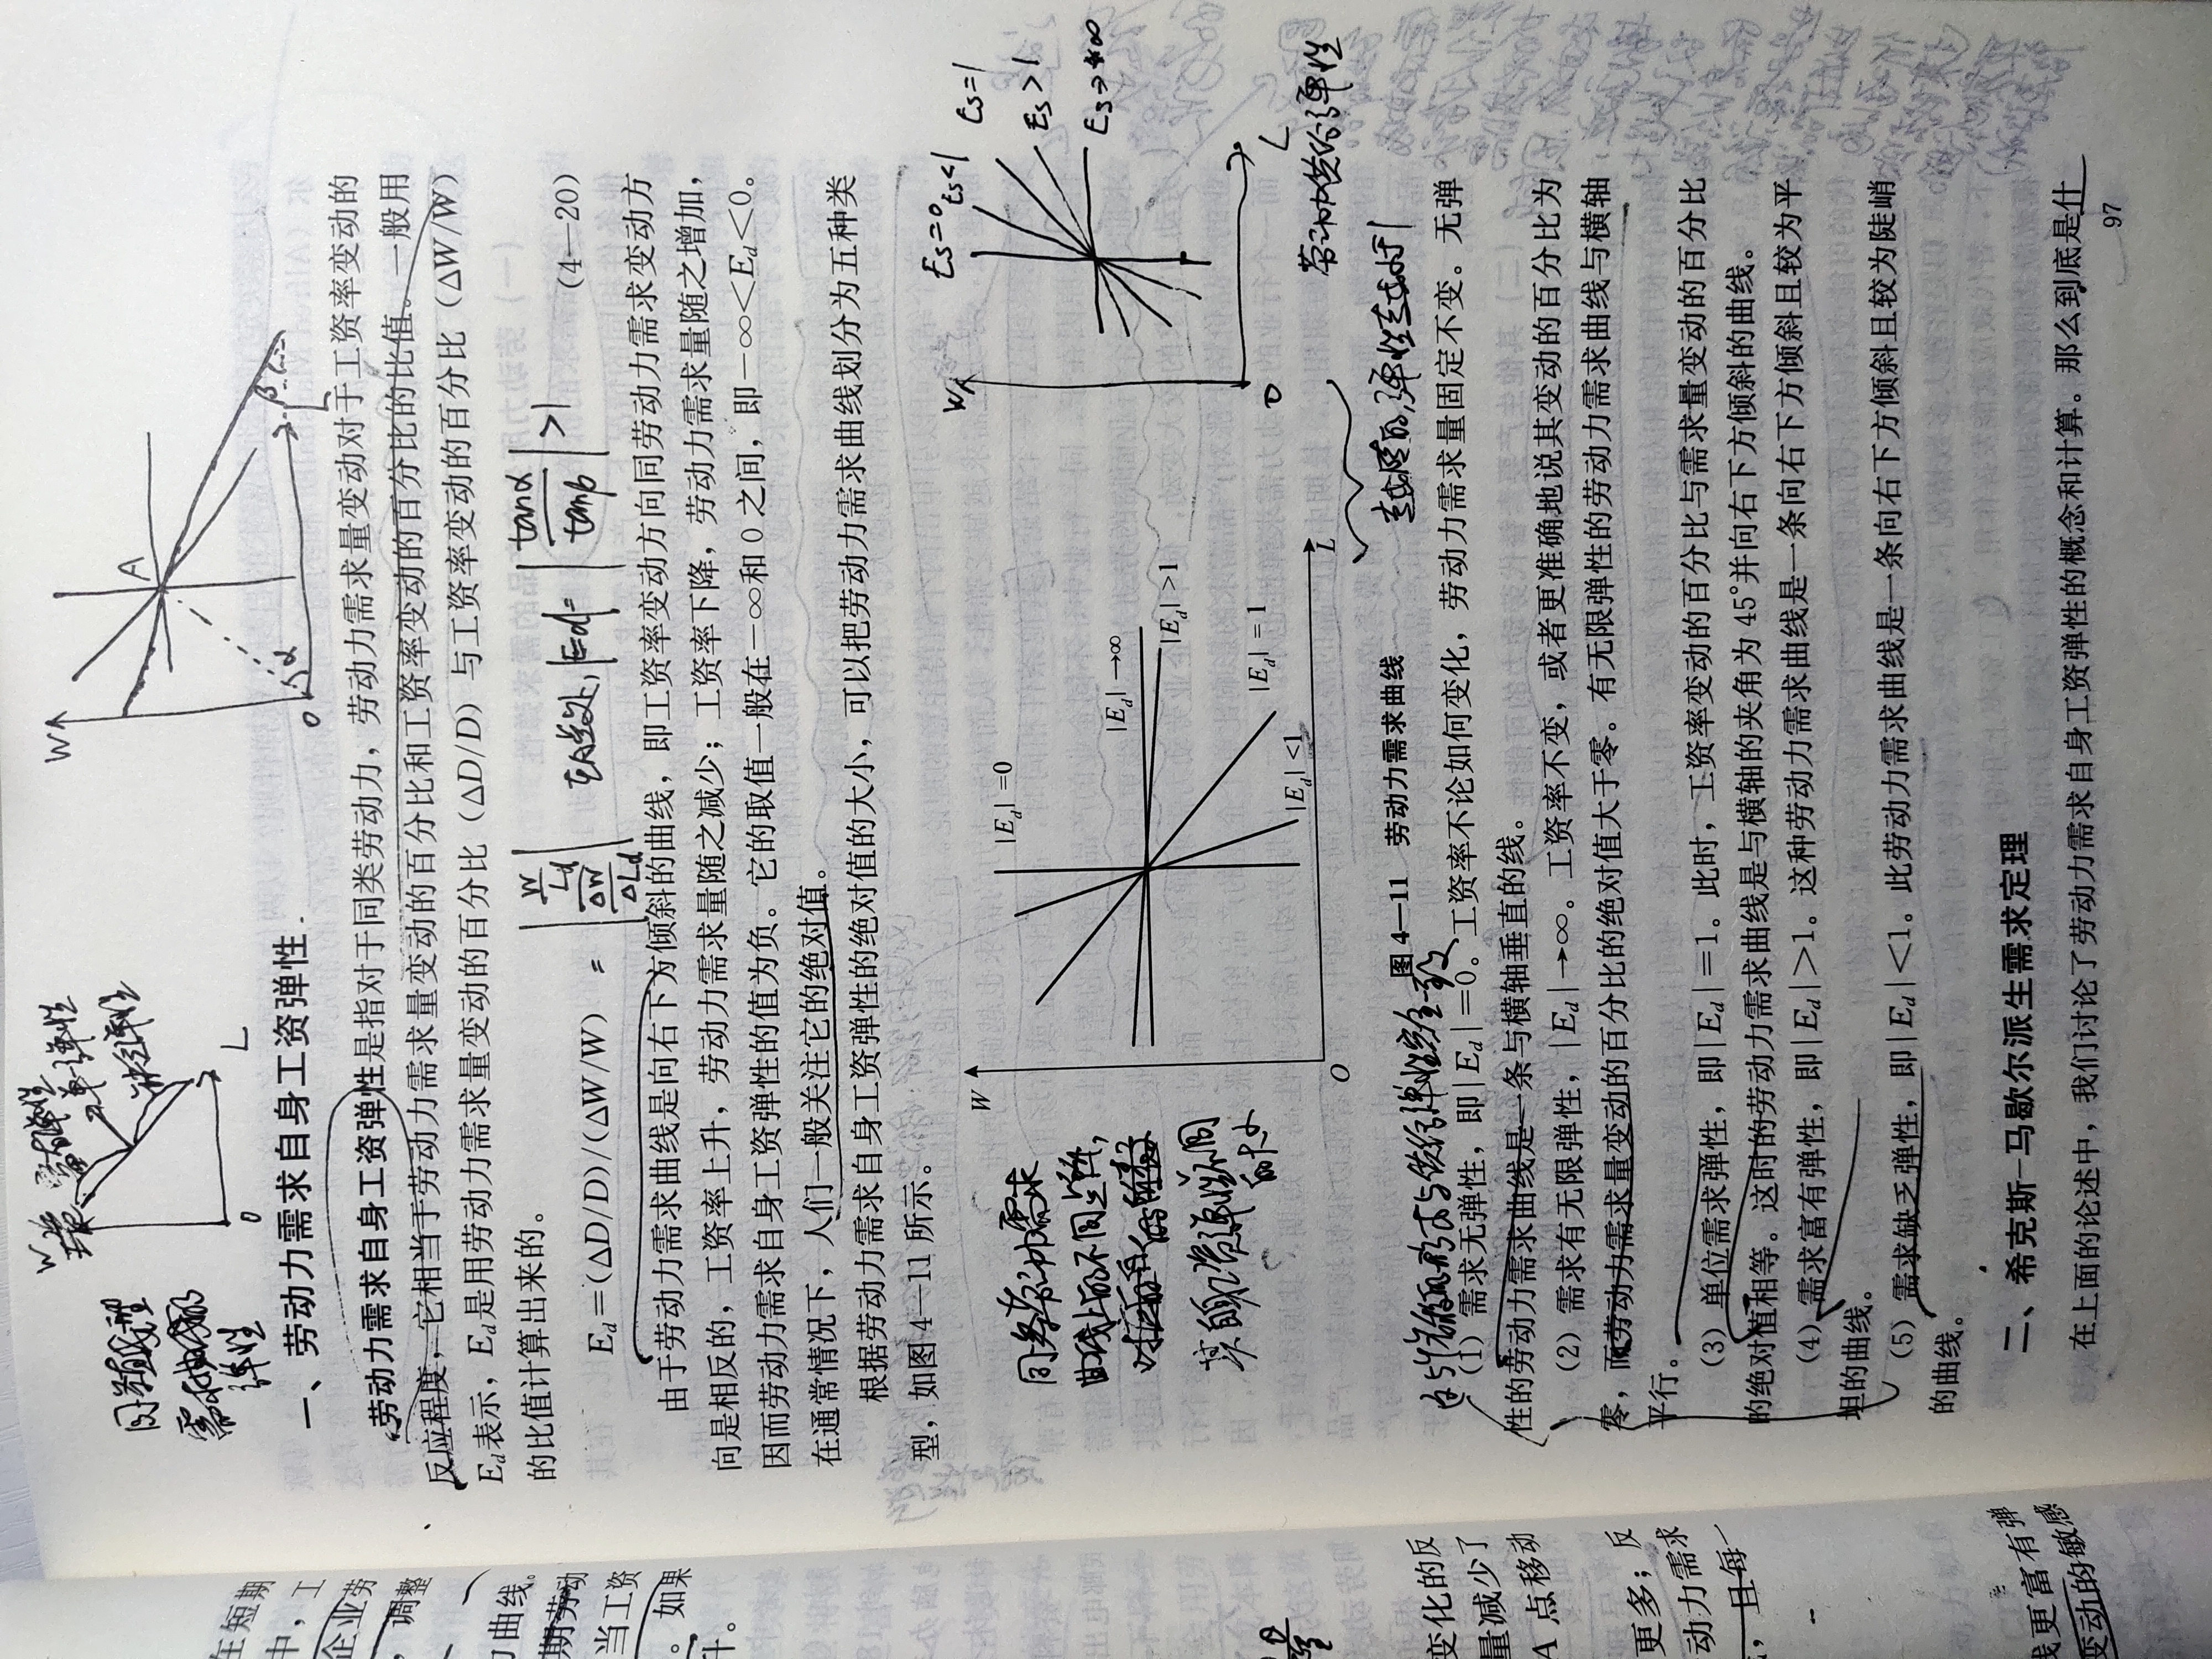 W
富有弹性
单一弹性
缺乏弹性
O
L
W
A
α
β
O
L
需求曲线的
弹性
一、劳动力需求自身工资弹性
劳动力需求自身工资弹性是指对于同类劳动力，劳动力需求量变动对于工资率变动的
反应程度，它相当于劳动力需求量变动的百分比和工资率变动的百分比的比值。一般用
Ed表示，Ed是用劳动力需求量变动的百分比（ΔD/D）与工资率变动的百分比（ΔW/W）
的比值计算出来的。
Ed=(ΔD/D)/(ΔW/W) = |W/Ld / ΔW/ΔLd| 在A点处，|Ed|=|tanα/tanβ|>1 (4—20)
由于劳动力需求曲线是向右下方倾斜的曲线，即工资率变动方向同劳动力需求变动方
向是相反的，工资率上升，劳动力需求量随之减少；工资率下降，劳动力需求量随之增加，
因而劳动力需求自身工资弹性的值为负。它的取值一般在－∞和0之间，即－∞<Ed<0。
在通常情况下，人们一般关注它的绝对值。
根据劳动力需求自身工资弹性的绝对值的大小，可以把劳动力需求曲线划分为五种类
型，如图4—11所示。
同一条劳动力需求
曲线上的不同点，
W
|Ed|=0
|Ed|→∞
|Ed|>1
|Ed|=1
|Ed|<1
O
L
W
Es=0
Es<1
Es=1
Es>1
Es→+∞
O
L
劳动力供给弹性
图4—11 劳动力需求曲线
（1）需求无弹性，即|Ed|=0。工资率不论如何变化，劳动力需求量固定不变。无弹
性的劳动力需求曲线是一条与横轴垂直的线。
（2）需求有无限弹性，|Ed|→∞。工资率不变，或者更准确地说其变动的百分比为
零，而劳动力需求量变动的百分比的绝对值大于零。有无限弹性的劳动力需求曲线与横轴
平行。
（3）单位需求弹性，即|Ed|=1。此时，工资率变动的百分比与需求量变动的百分比
的绝对值相等。这时的劳动力需求曲线是与横轴的夹角为45°并向右下方倾斜的曲线。
（4）需求富有弹性，即|Ed|>1。这种劳动力需求曲线是一条向右下方倾斜且较为平
坦的曲线。
（5）需求缺乏弹性，即|Ed|<1。此劳动力需求曲线是一条向右下方倾斜且较为陡峭
的曲线。
二、希克斯-马歇尔派生需求定理
在上面的论述中，我们讨论了劳动力需求自身工资弹性的概念和计算。那么到底是什
97
在短期
中，工
企业劳
，调整
力曲线。
期劳动
当工资
。如果
升。
变化的反
量减少了
A点移动
更多；反
动力需求
，且每一
线更富有弹
变动的敏感